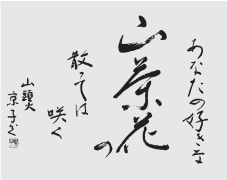 あなたの好きな
山茶花の
散っては
咲く
山頭火
京子かく